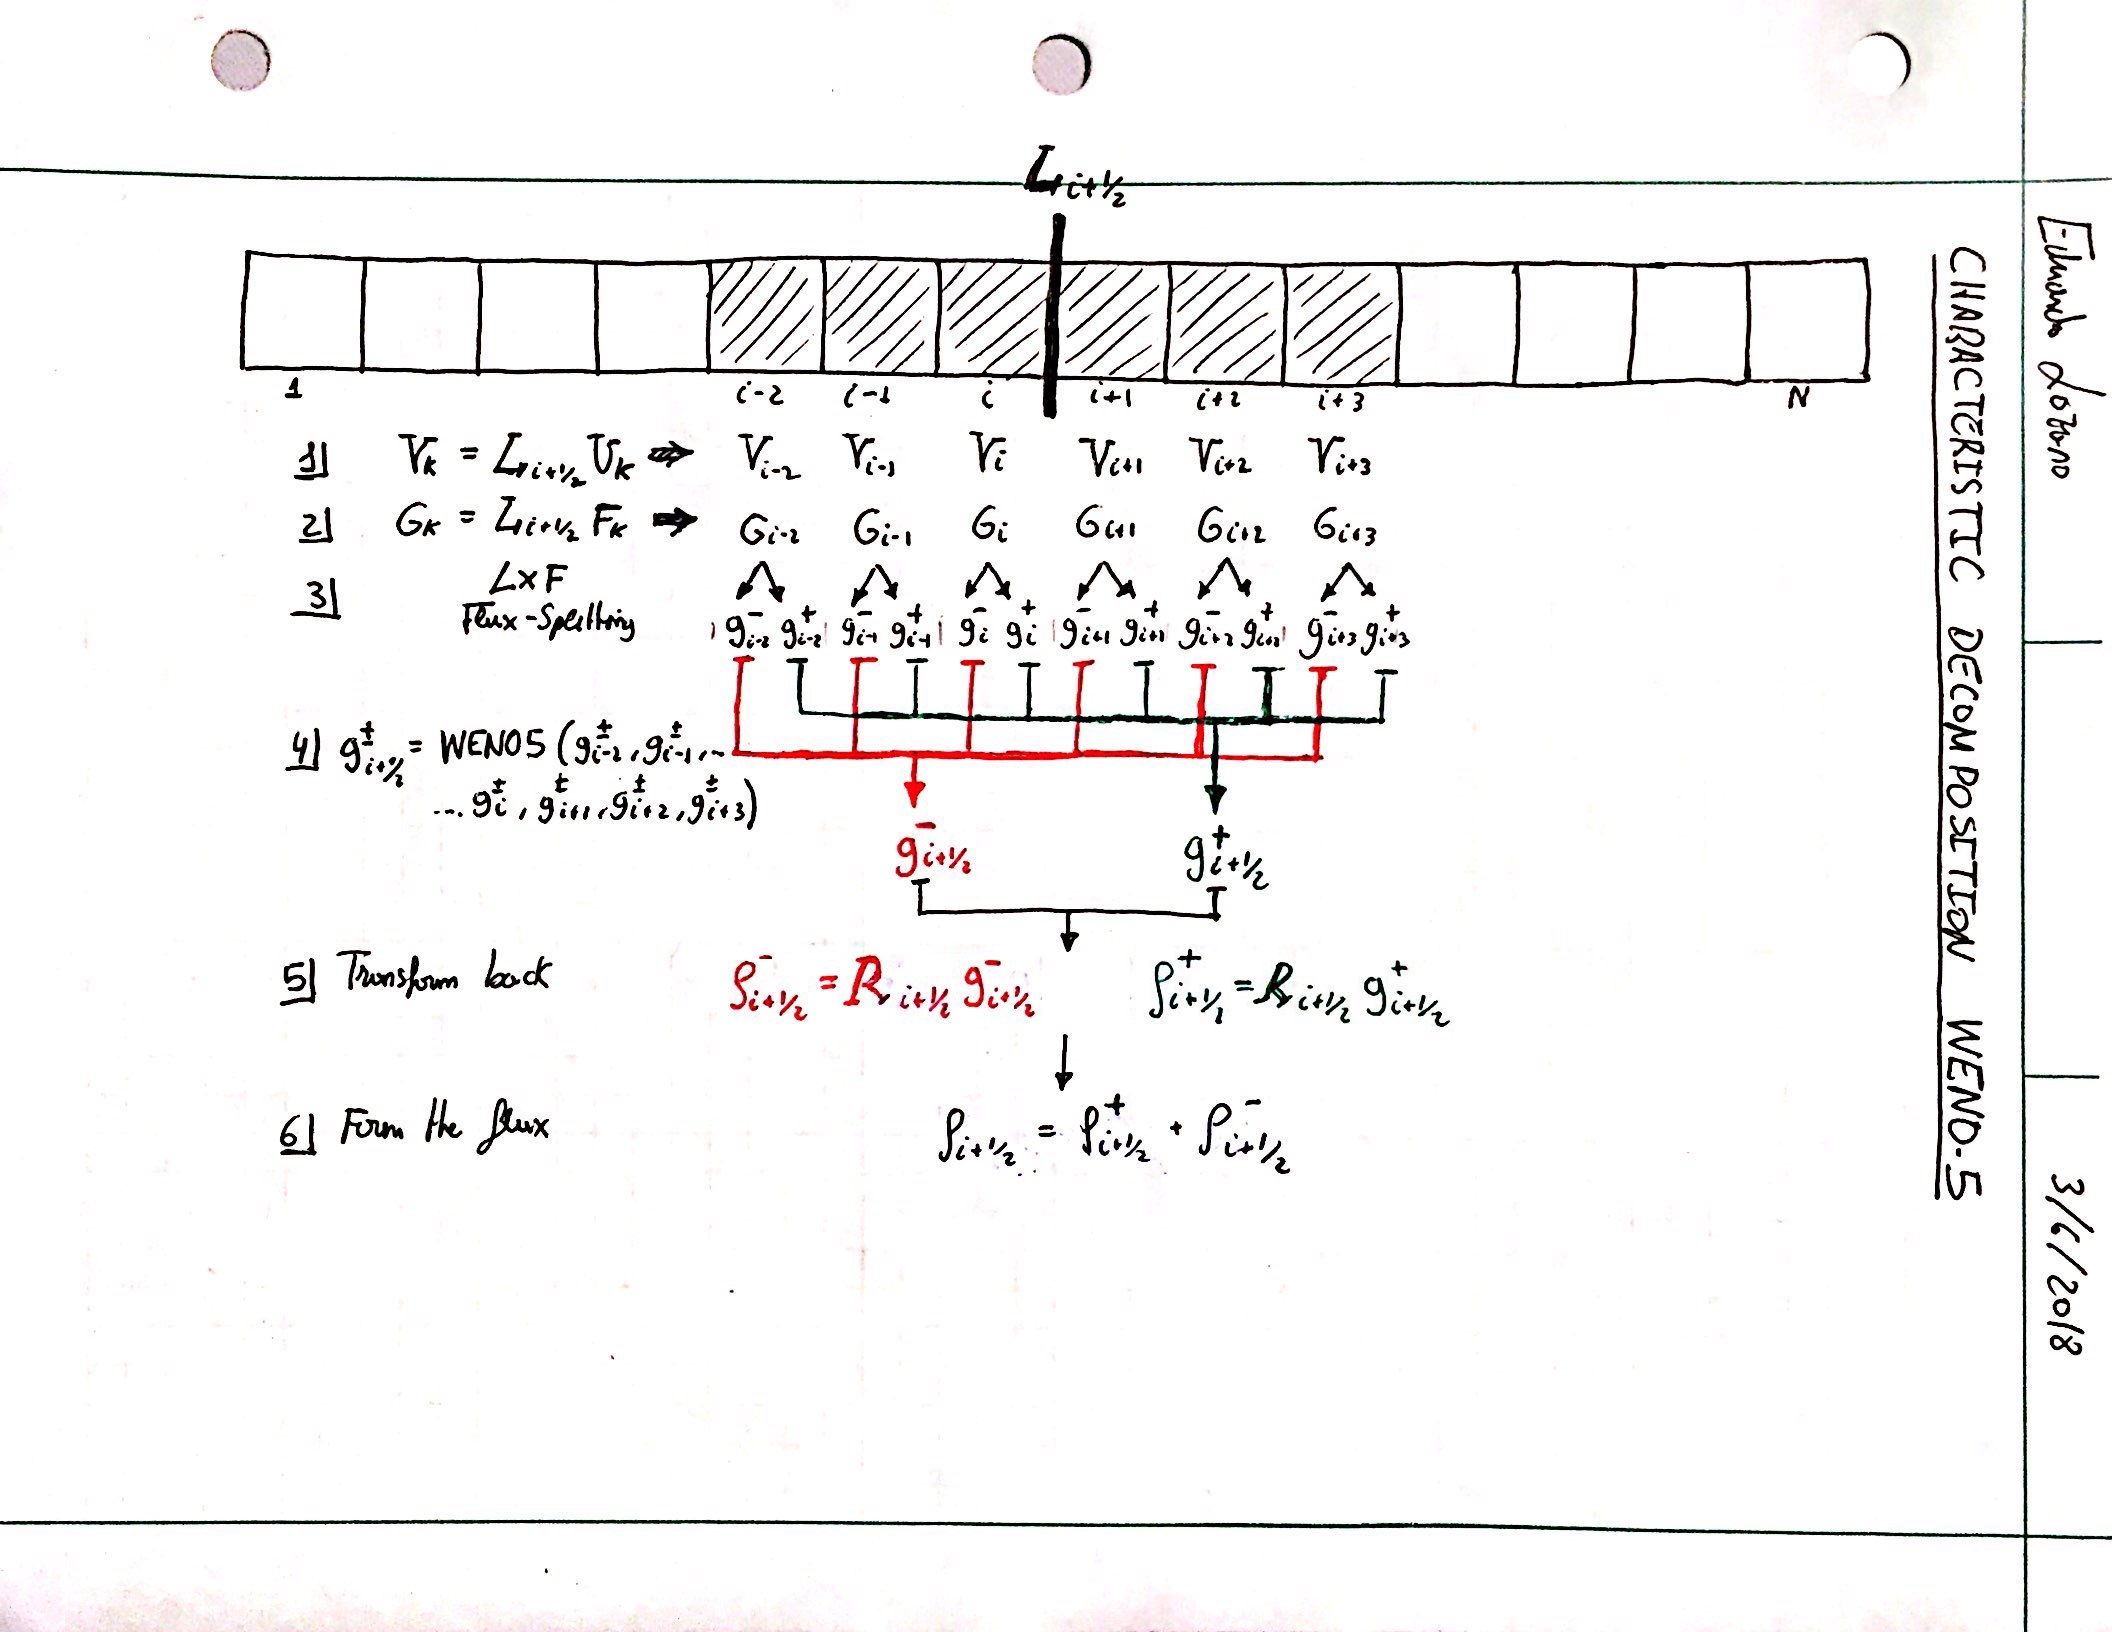 L_{i+1/2}
1 i-2 i-1 i i+1 i+2 i+3 N
1] V_K = L_{i+1/2} U_K ⇒ V_{i-2} V_{i-1} V_i V_{i+1} V_{i+2} V_{i+3}
2] G_K = L_{i+1/2} F_K ⇒ G_{i-2} G_{i-1} G_i G_{i+1} G_{i+2} G_{i+3}
3] LxF
Flux-Splitting g^-_{i-2} g^+_{i-2} g^-_{i-1} g^+_{i-1} g^-_i g^+_i g^-_{i+1} g^+_{i+1} g^-_{i+2} g^+_{i+2} g^-_{i+3} g^+_{i+3}
4] g^±_{i+1/2} = WENO5 (g^±_{i-2}, g^±_{i-1}, ...
... g^±_i, g^±_{i+1}, g^±_{i+2}, g^±_{i+3})
g^-_{i+1/2} g^+_{i+1/2}
5] Transform back f^-_{i+1/2} = R_{i+1/2} g^-_{i+1/2} f^+_{i+1/2} = R_{i+1/2} g^+_{i+1/2}
6] Form the flux f_{i+1/2} = f^+_{i+1/2} + f^-_{i+1/2}
CHARACTERISTIC DECOMPOSITION WENO-5
Eduardo Lozano
3/6/2018